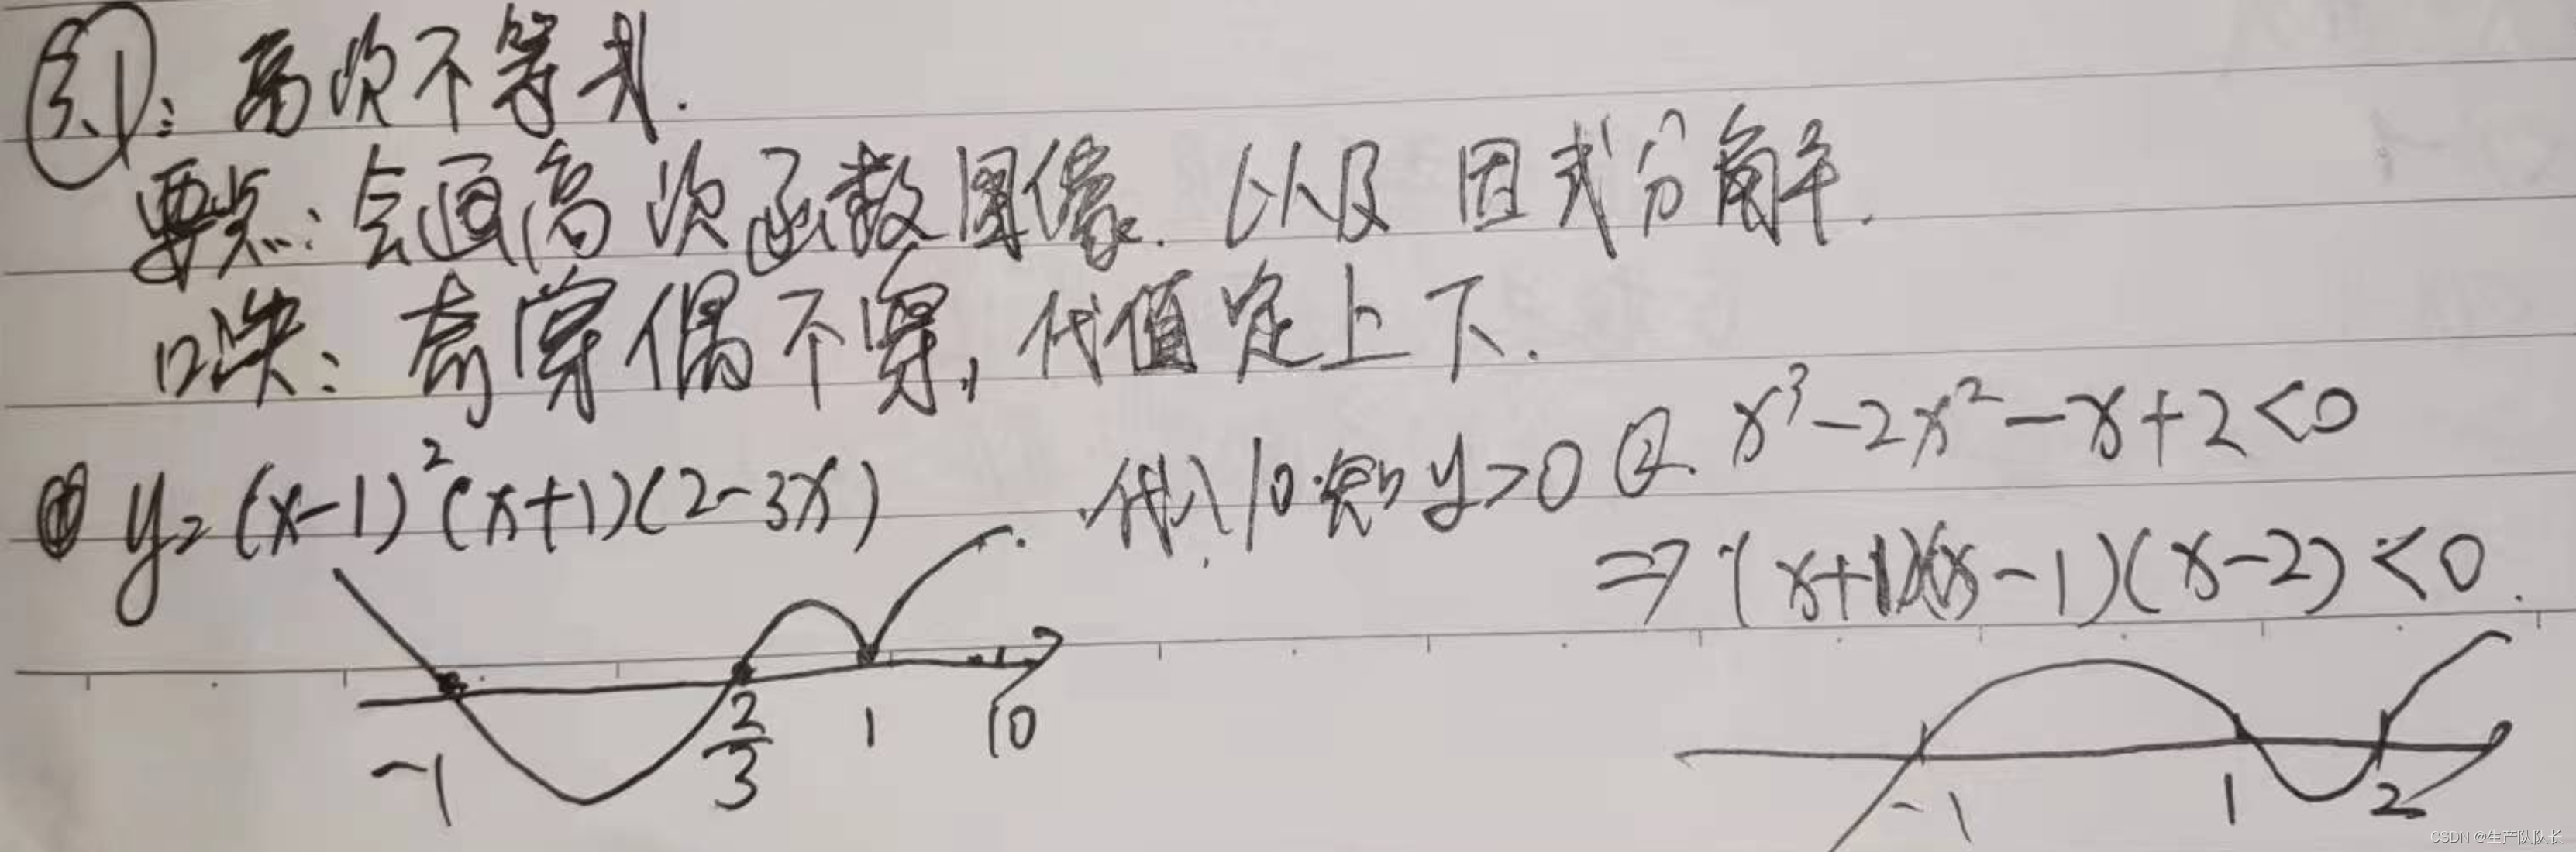 3.1：高次不等式.
要点：会画高次函数图像. 以及 因式分解.
口诀：奇穿偶不穿, 代值定上下.
① y=(x-1)²(x+1)(2-3x) 代入10.知 y>0
② x³-2x²-x+2<0
=>(x+1)(x-1)(x-2)<0.
-1 2/3 1 10
-1 1 2
CSDN @生产队队长